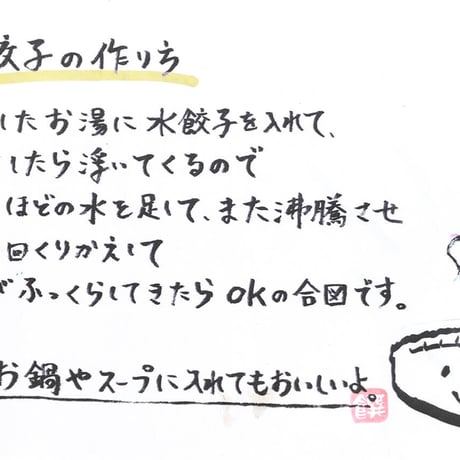 餃子の作り方
したお湯に水餃子を入れて、
したら浮いてくるので
ほどの水を足して、また沸騰させ
回くりかえして
がふっくらしてきたらOKの合図です。
お鍋やスープに入れてもおいしいよ。